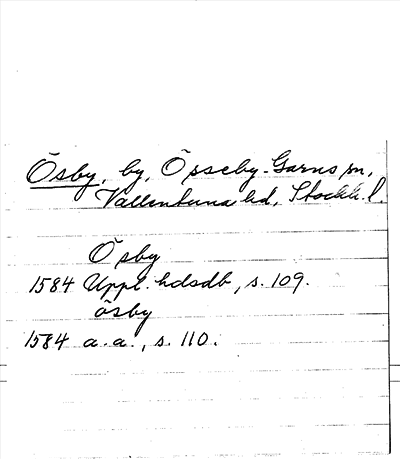 Ösby, by, Össeby-Garns sn,
Vallentuna hd, Stockh. l.
Ösby
1584 Uppl. hdsdb, s. 109.
ösby
1584 a. a., s. 110.